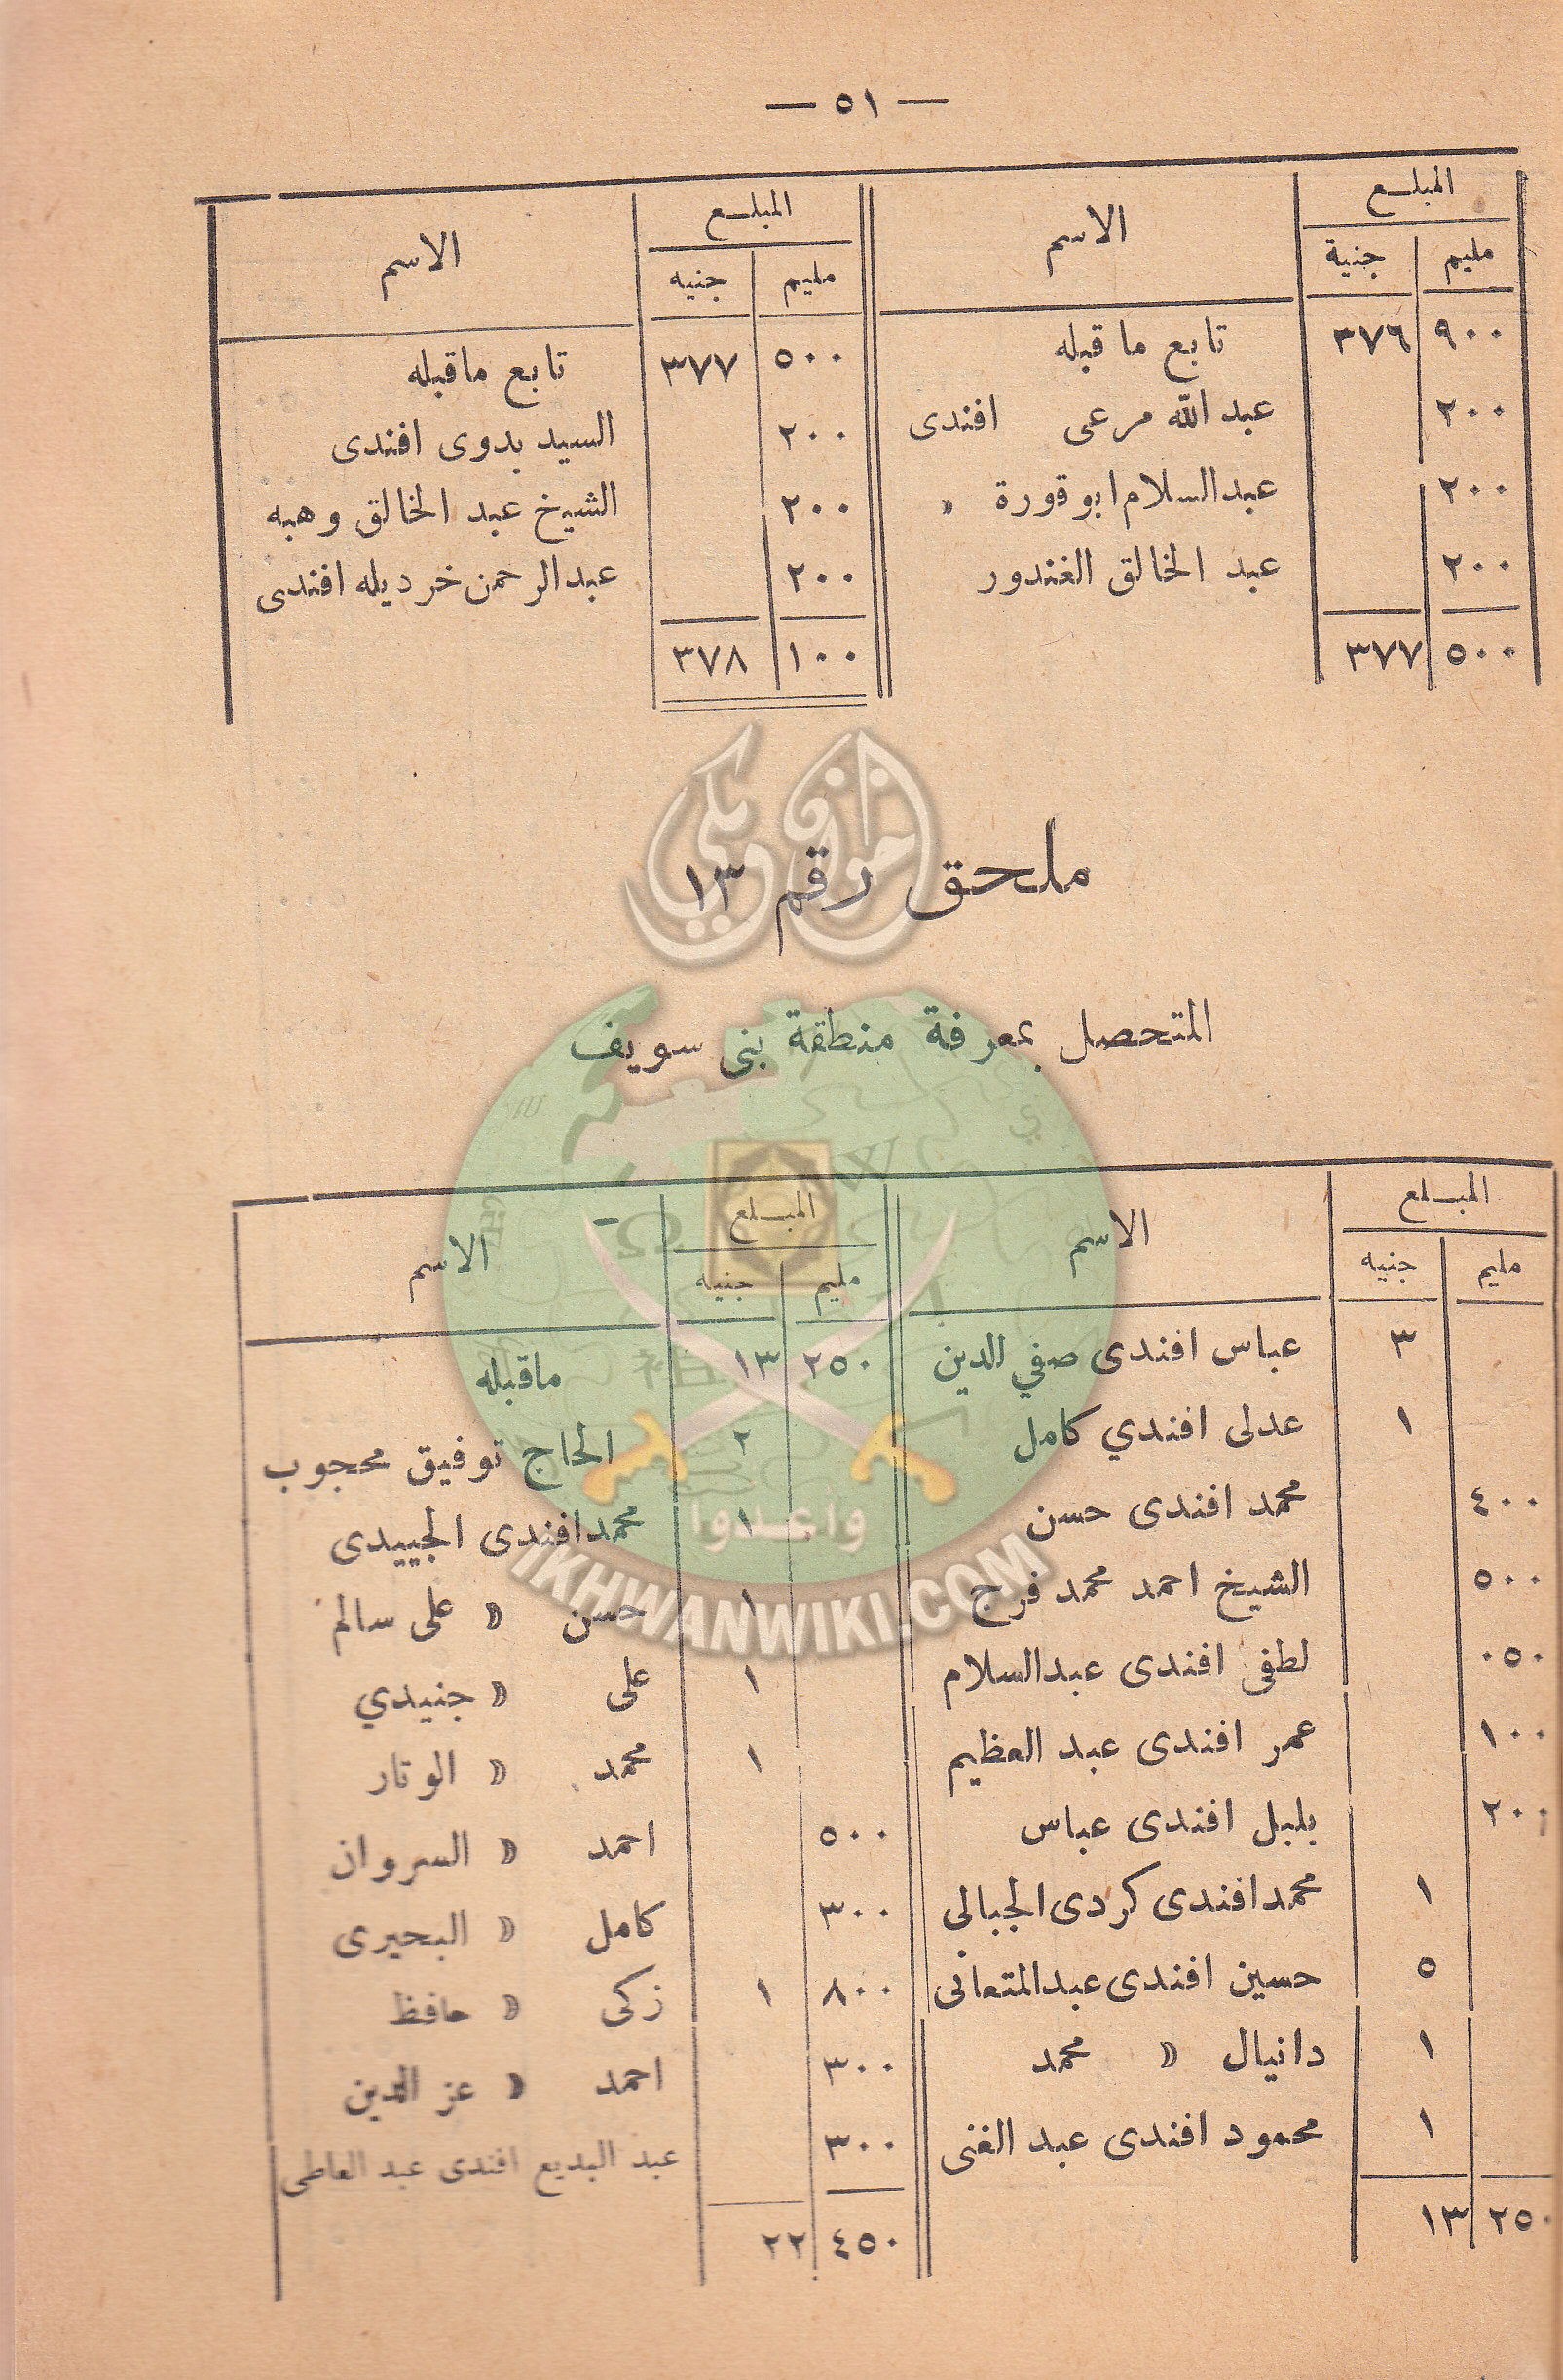 — ٥١ —
المبلغ الاسم المبلغ الاسم
مليم جنية مليم جنيه
٩٠٠ ٣٧٦ تابع ما قبله
٢٠٠ عبد الله مرعى افندى
٢٠٠ عبد السلام ابو قورة »
٢٠٠ عبد الخالق الغندور
٥٠٠ ٣٧٧
٥٠٠ ٣٧٧ تابع ماقبله
٢٠٠ السيد بدوى افندى
٢٠٠ الشيخ عبد الخالق وهبه
٢٠٠ عبد الرحمن خرديله افندى
١٠٠ ٣٧٨
ملحق رقم ١٣
المتحصل بمعرفة منطقة بنى سويف
المبلغ الاسم المبلغ الاسم
مليم جنيه مليم جنيه
٣ عباس افندى صفي الدين
١ عدلى افندي كامل
٤٠٠ محمد افندى حسن
٥٠٠ الشيخ احمد محمد فرج
٠٥٠ لطفى افندى عبد السلام
١٠٠ عمر افندى عبد العظيم
٢٠٠ بلبل افندى عباس
١ محمد افندى كردى الجبالى
٥ حسين افندى عبد المتعافى
١ دانيال » محمد
١ محمود افندى عبد الغنى
٢٥٠ ١٣
٢٥٠ ١٣ ماقبله
٢ الحاج توفيق محجوب
١ محمد افندى الجبيدى
١ حسن » على سالم
١ على » جنيدي
١ محمد » الوتار
٥٠٠ احمد » السروان
٣٠٠ كامل » البحيرى
٨٠٠ ١ زكى » حافظ
٣٠٠ احمد » عز الدين
٣٠٠ عبد البديع افندى عبد العاطى
٤٥٠ ٢٢
إخوان ويكي
وأعدوا
IKHWANWIKI.COM